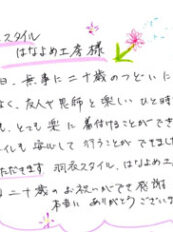 スタイル
はなよめ工房 様
日、無事に二十歳のつどいに
なく、友人や恩師と楽しいひと時
も、とても楽に着付けることができ
イルも安心して行うことができまし
ただきます 羽衣スタイル、はなよめ工
は二十歳のお祝いができ感謝
本当にありがとうございま